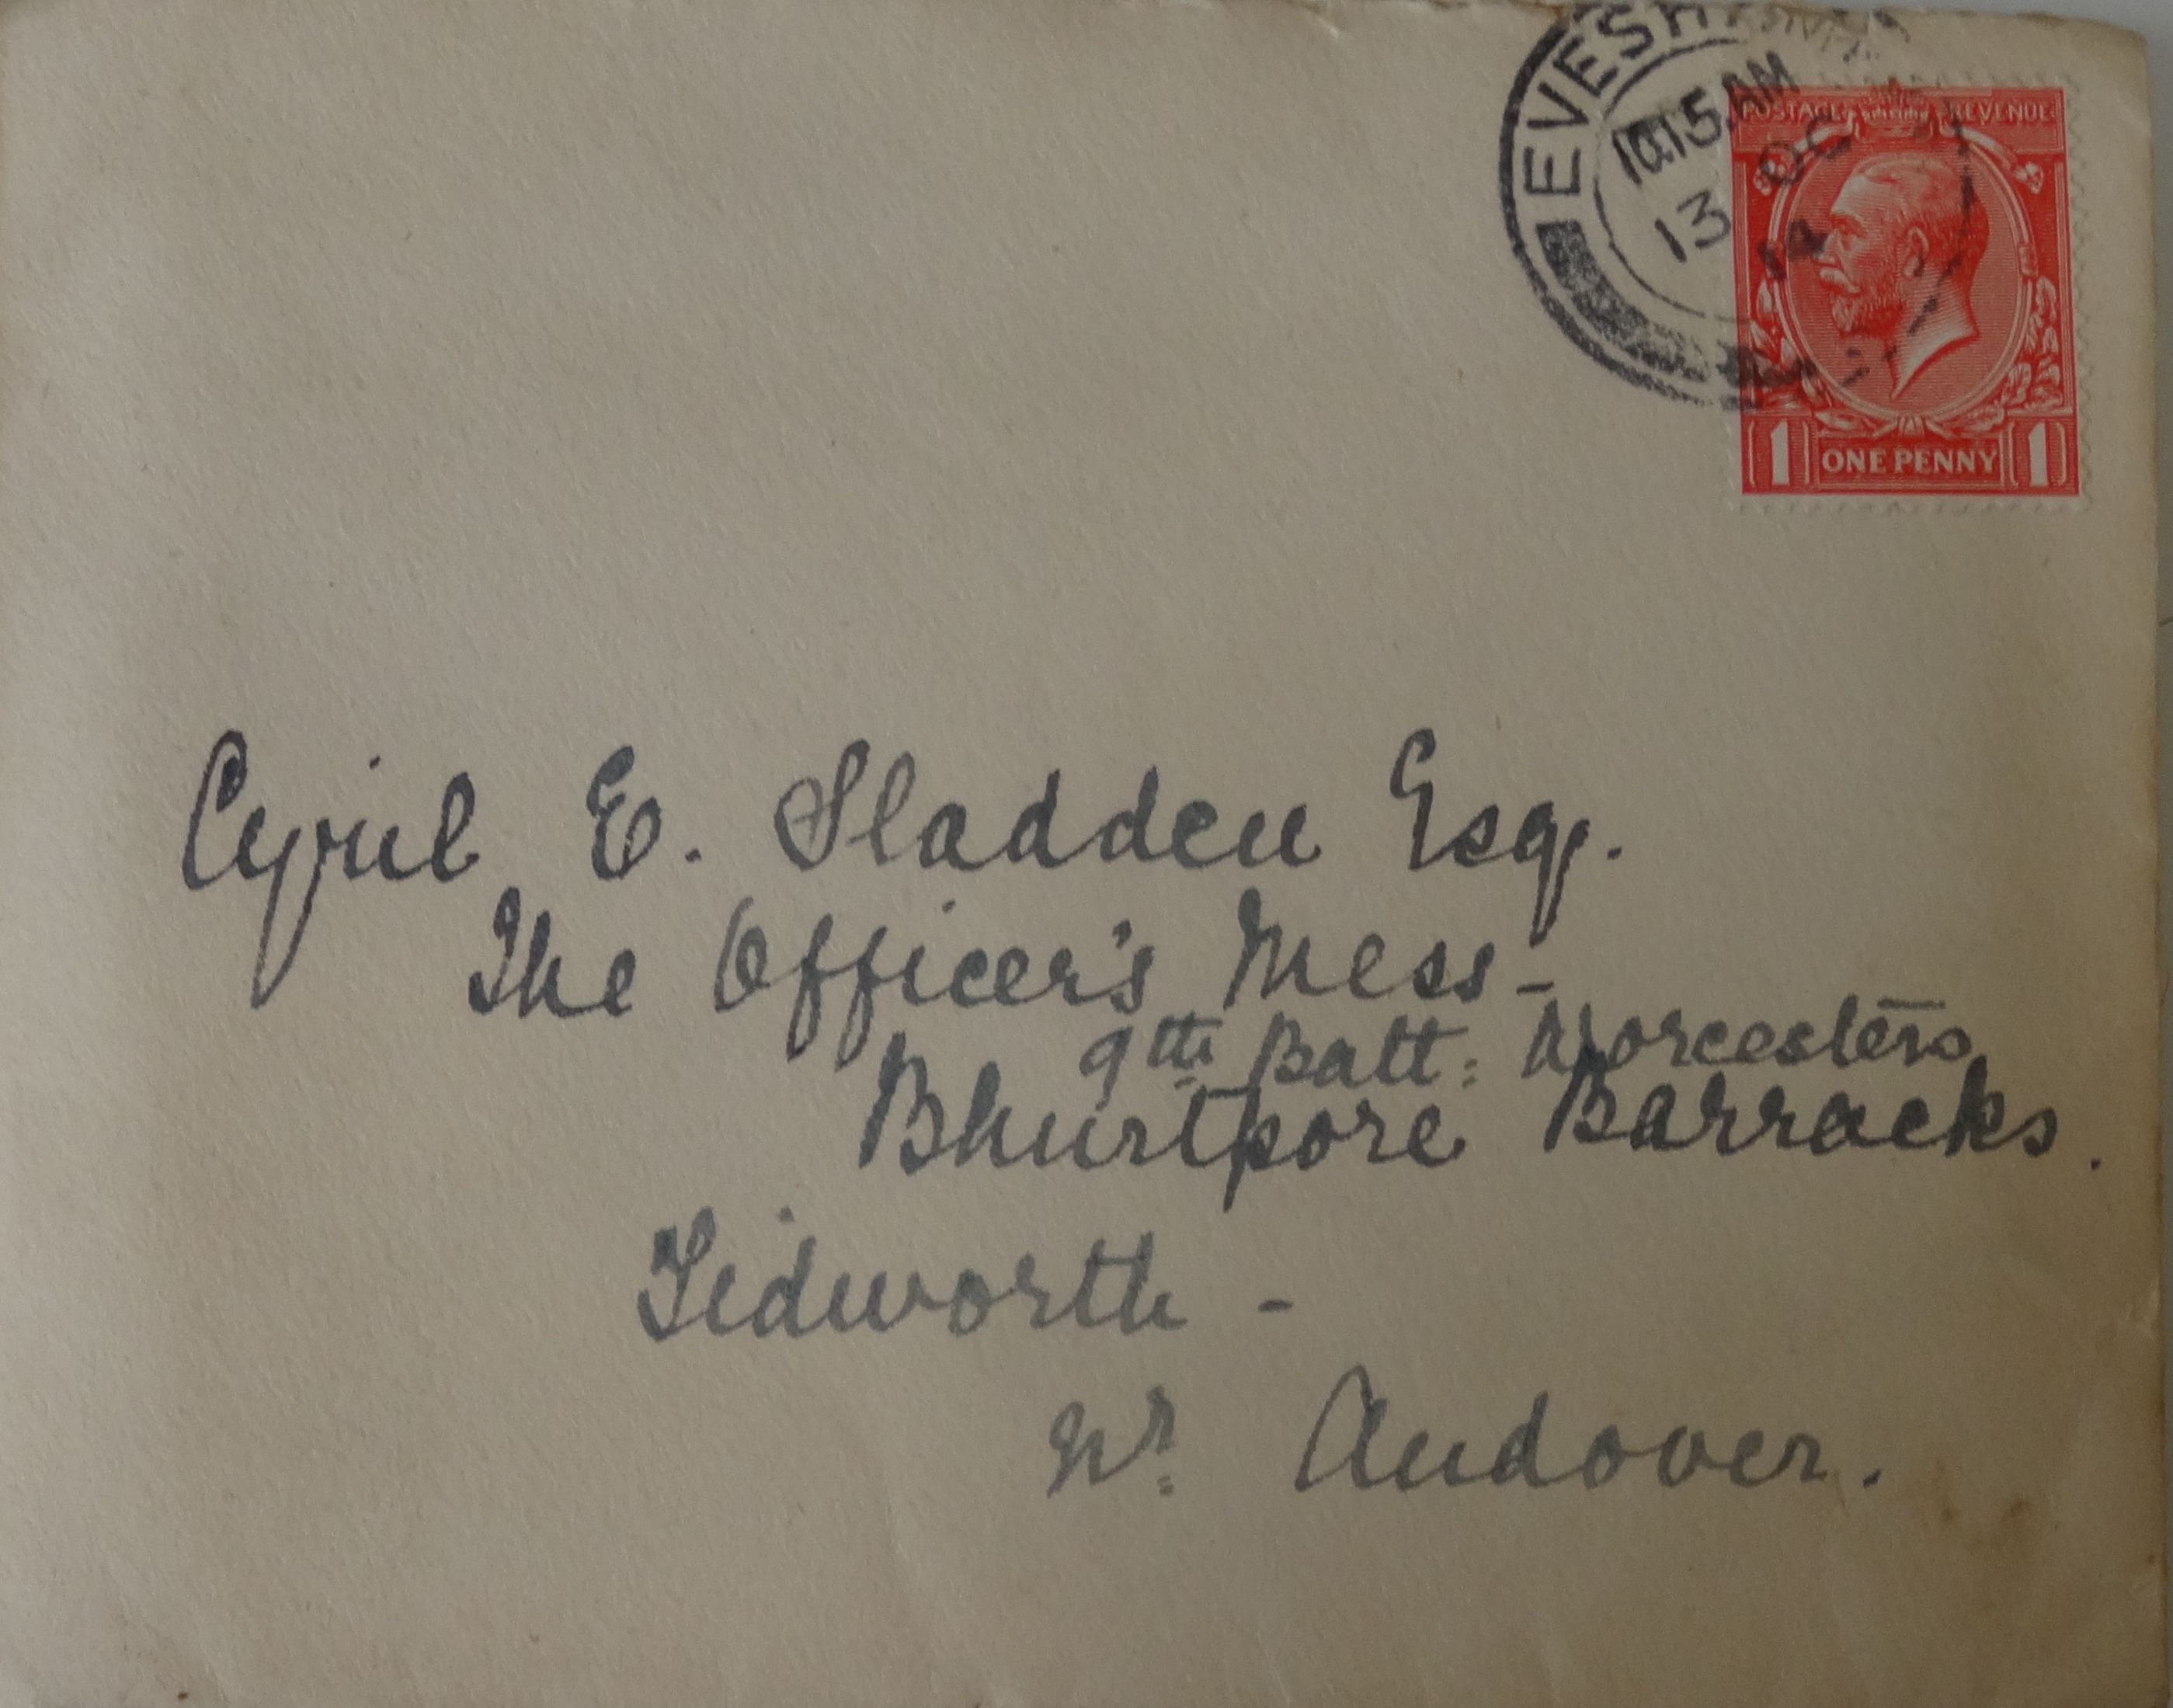 EVESHA
10.15 AM
13 OC
14
POSTAGE REVENUE
1 ONE PENNY 1
Cyril E. Sladden Esq.
The Officer's Mess –
9th Batt: Worcesters
Bhurtpore Barracks.
Tidworth –
Nr. Andover.